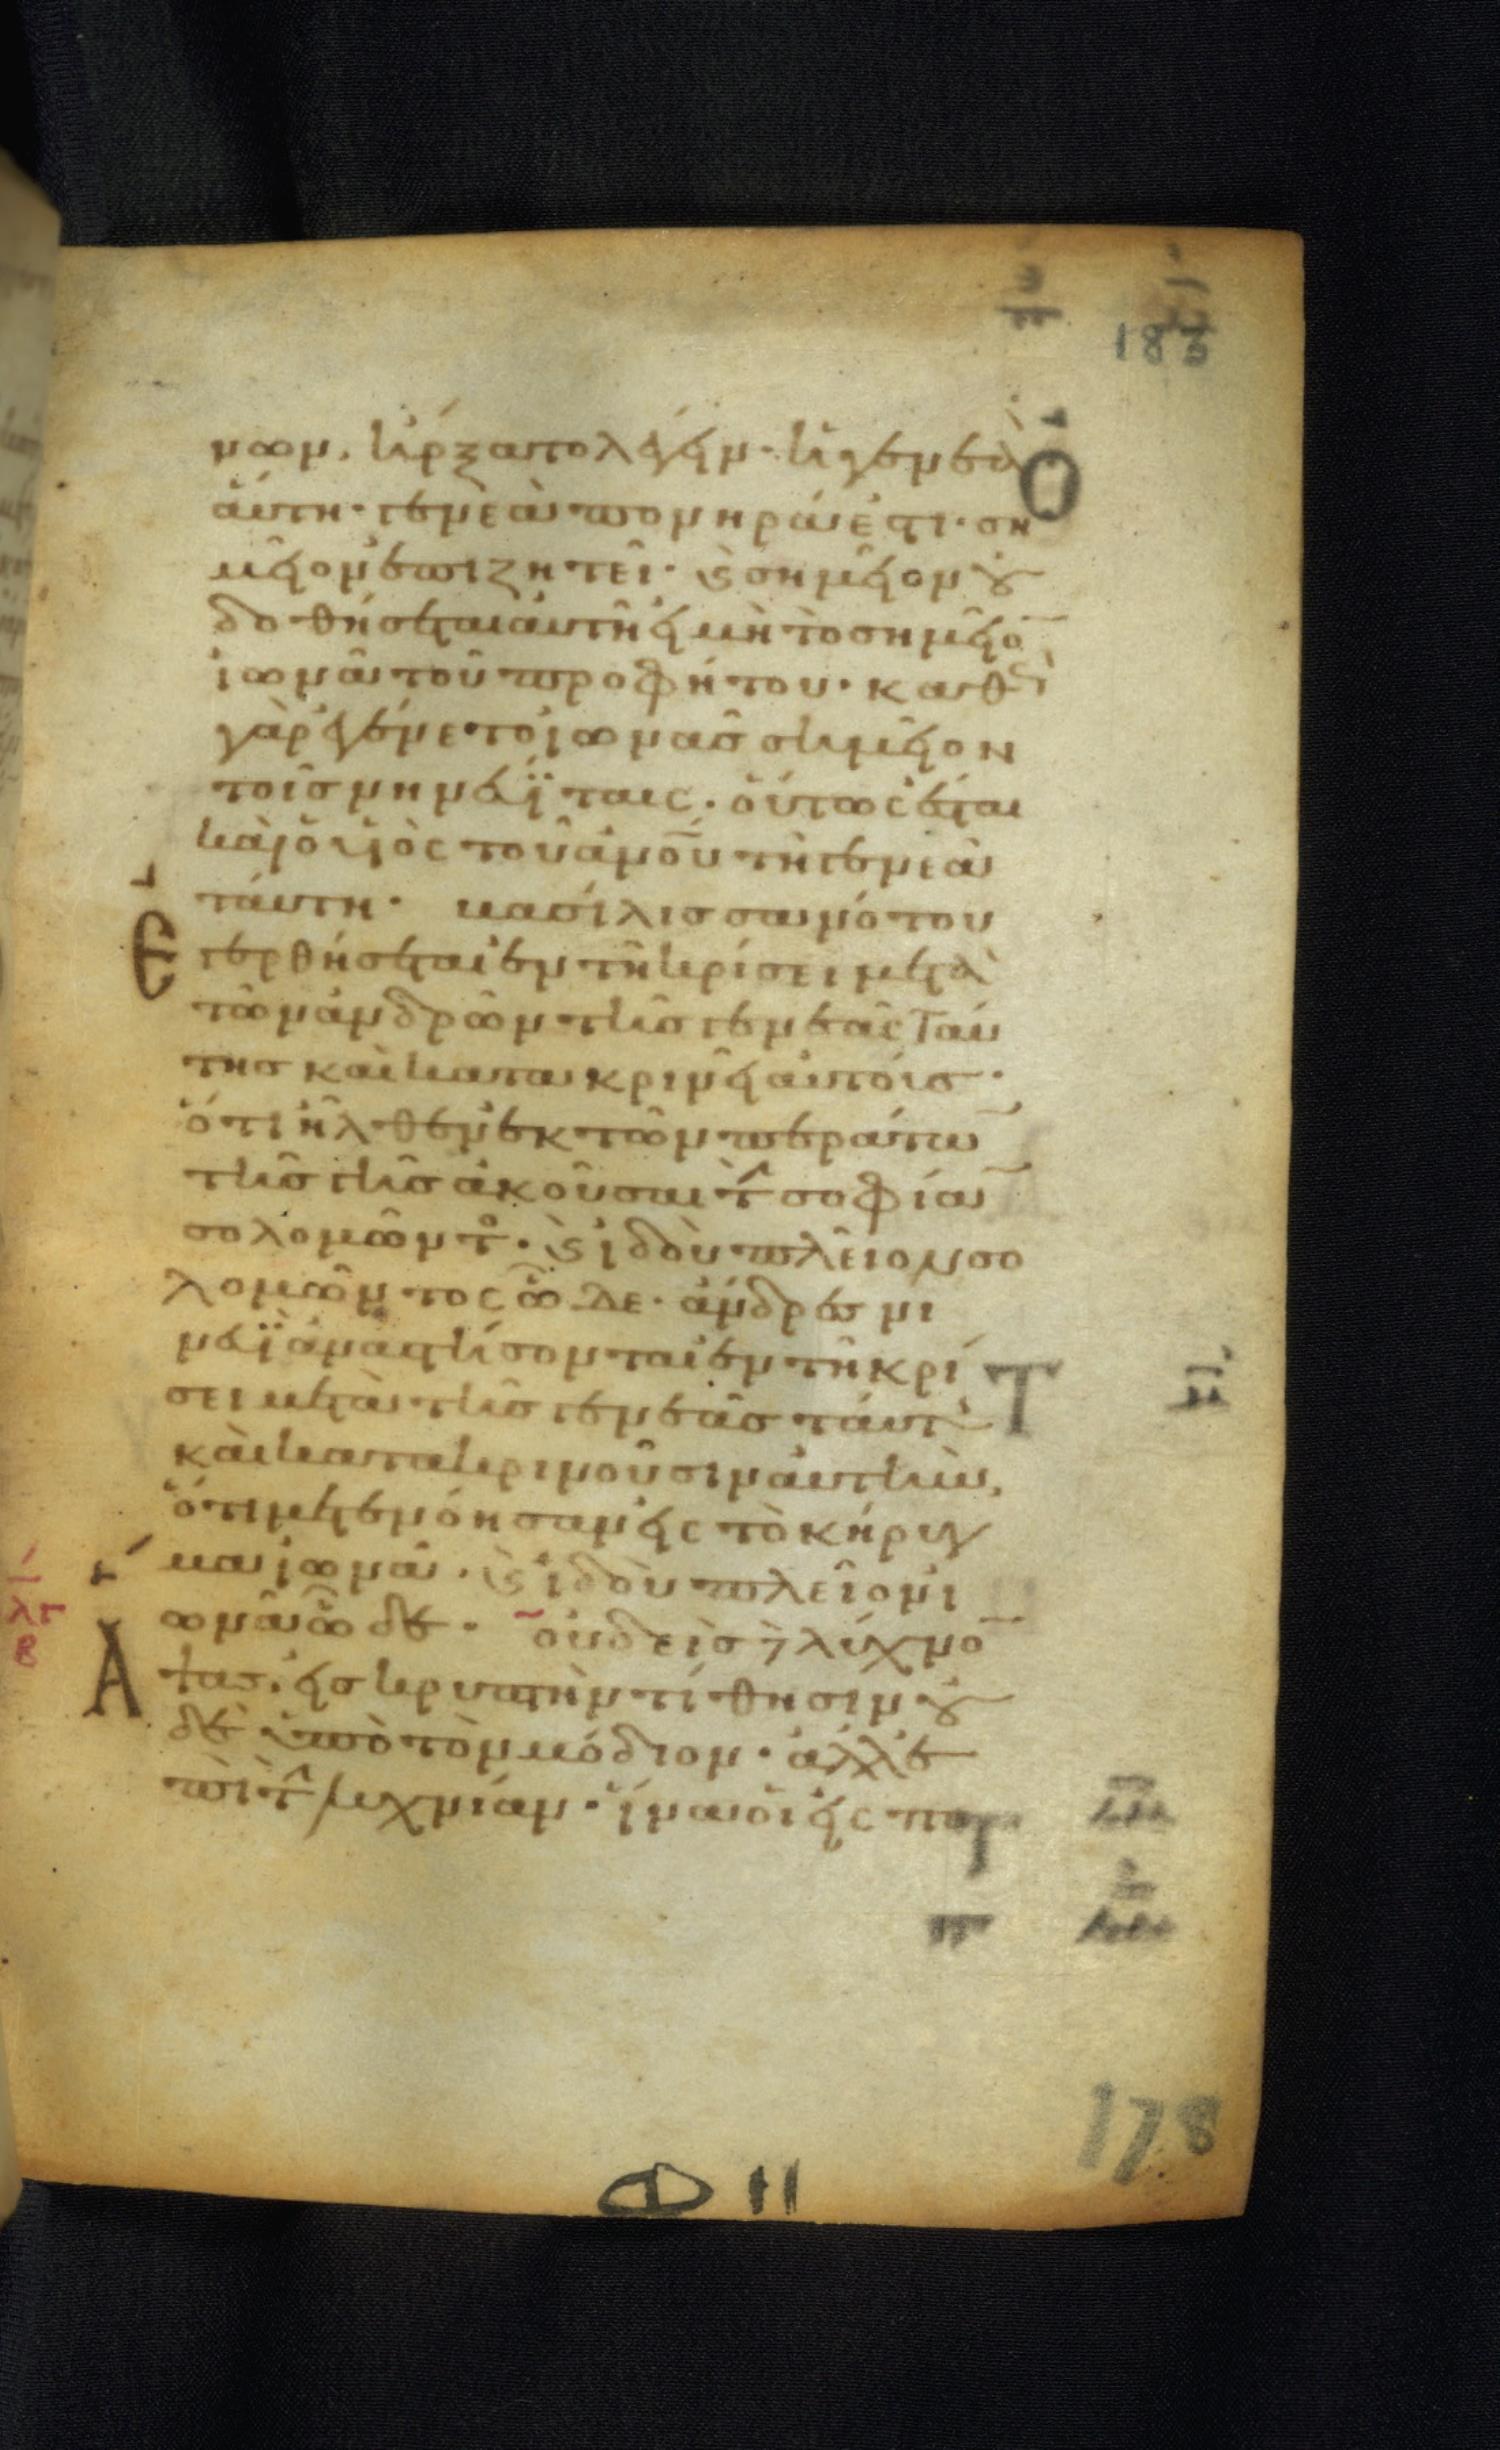 183
νων. ἤρξατο λέγειν· ἡ γενεὰ
αὕτη· γενεὰ πονηρά ἐστι· ση
μεῖον ἐπιζητεῖ· ϗ σημεῖον οὐ
δοθήσεται αὐτῆ εἰ μὴ τὸ σημεῖο̄
ἰωνᾶ τοῦ προφήτου· καθὼ(ς)
γὰρ ἐγένετο ἰωνᾶς σημεῖον
τοῖς νηνευΐταις· οὕτως ἔσται
καὶ ὁ υἱὸς τοῦ ἀν̅ο̅υ̅ τῆ γενεᾶ
ταύτη· βασίλισσα νότου
γερθήσεται ἐν τῆ κρίσει μετὰ
τῶν ἀνδρῶν τῆς γενεᾶς ταύ
της καὶ κατακρινεῖ αὐτούς·
ὅτι ἦλθεν ἐκ τῶν περάτω̄
τῆς γῆς ἀκοῦσαι τ(ὴν) σοφίᾱ
σολομῶντο(ς)· ϗ ἰδοὺ πλεῖον σο
λομῶντος ὧδε· ἄνδρες νι
νευῒ ἀναστήσονται ἐν τῆ κρί
σει μετὰ τῆς γενεᾶς ταύτ(ης)
καὶ κατακρινοῦσιν αὐτήν,
ὅτι μετενόησαν εἰς τὸ κήρυγ
μα ἰωνᾶ· ϗ ἰδοὺ πλεῖον ἰ
ωνᾶ ὧδε· οὐδεὶς δ(ὲ) λύχνο̄
ἅψας, εἰς κρυπτὴν τίθησιν οὐ
δὲ ὑπὸ τὸν μόδιον· ἀλλ' ἐ
πὶ τ(ὴν) λυχνίαν· ἵνα οἱ εἰσπο
178